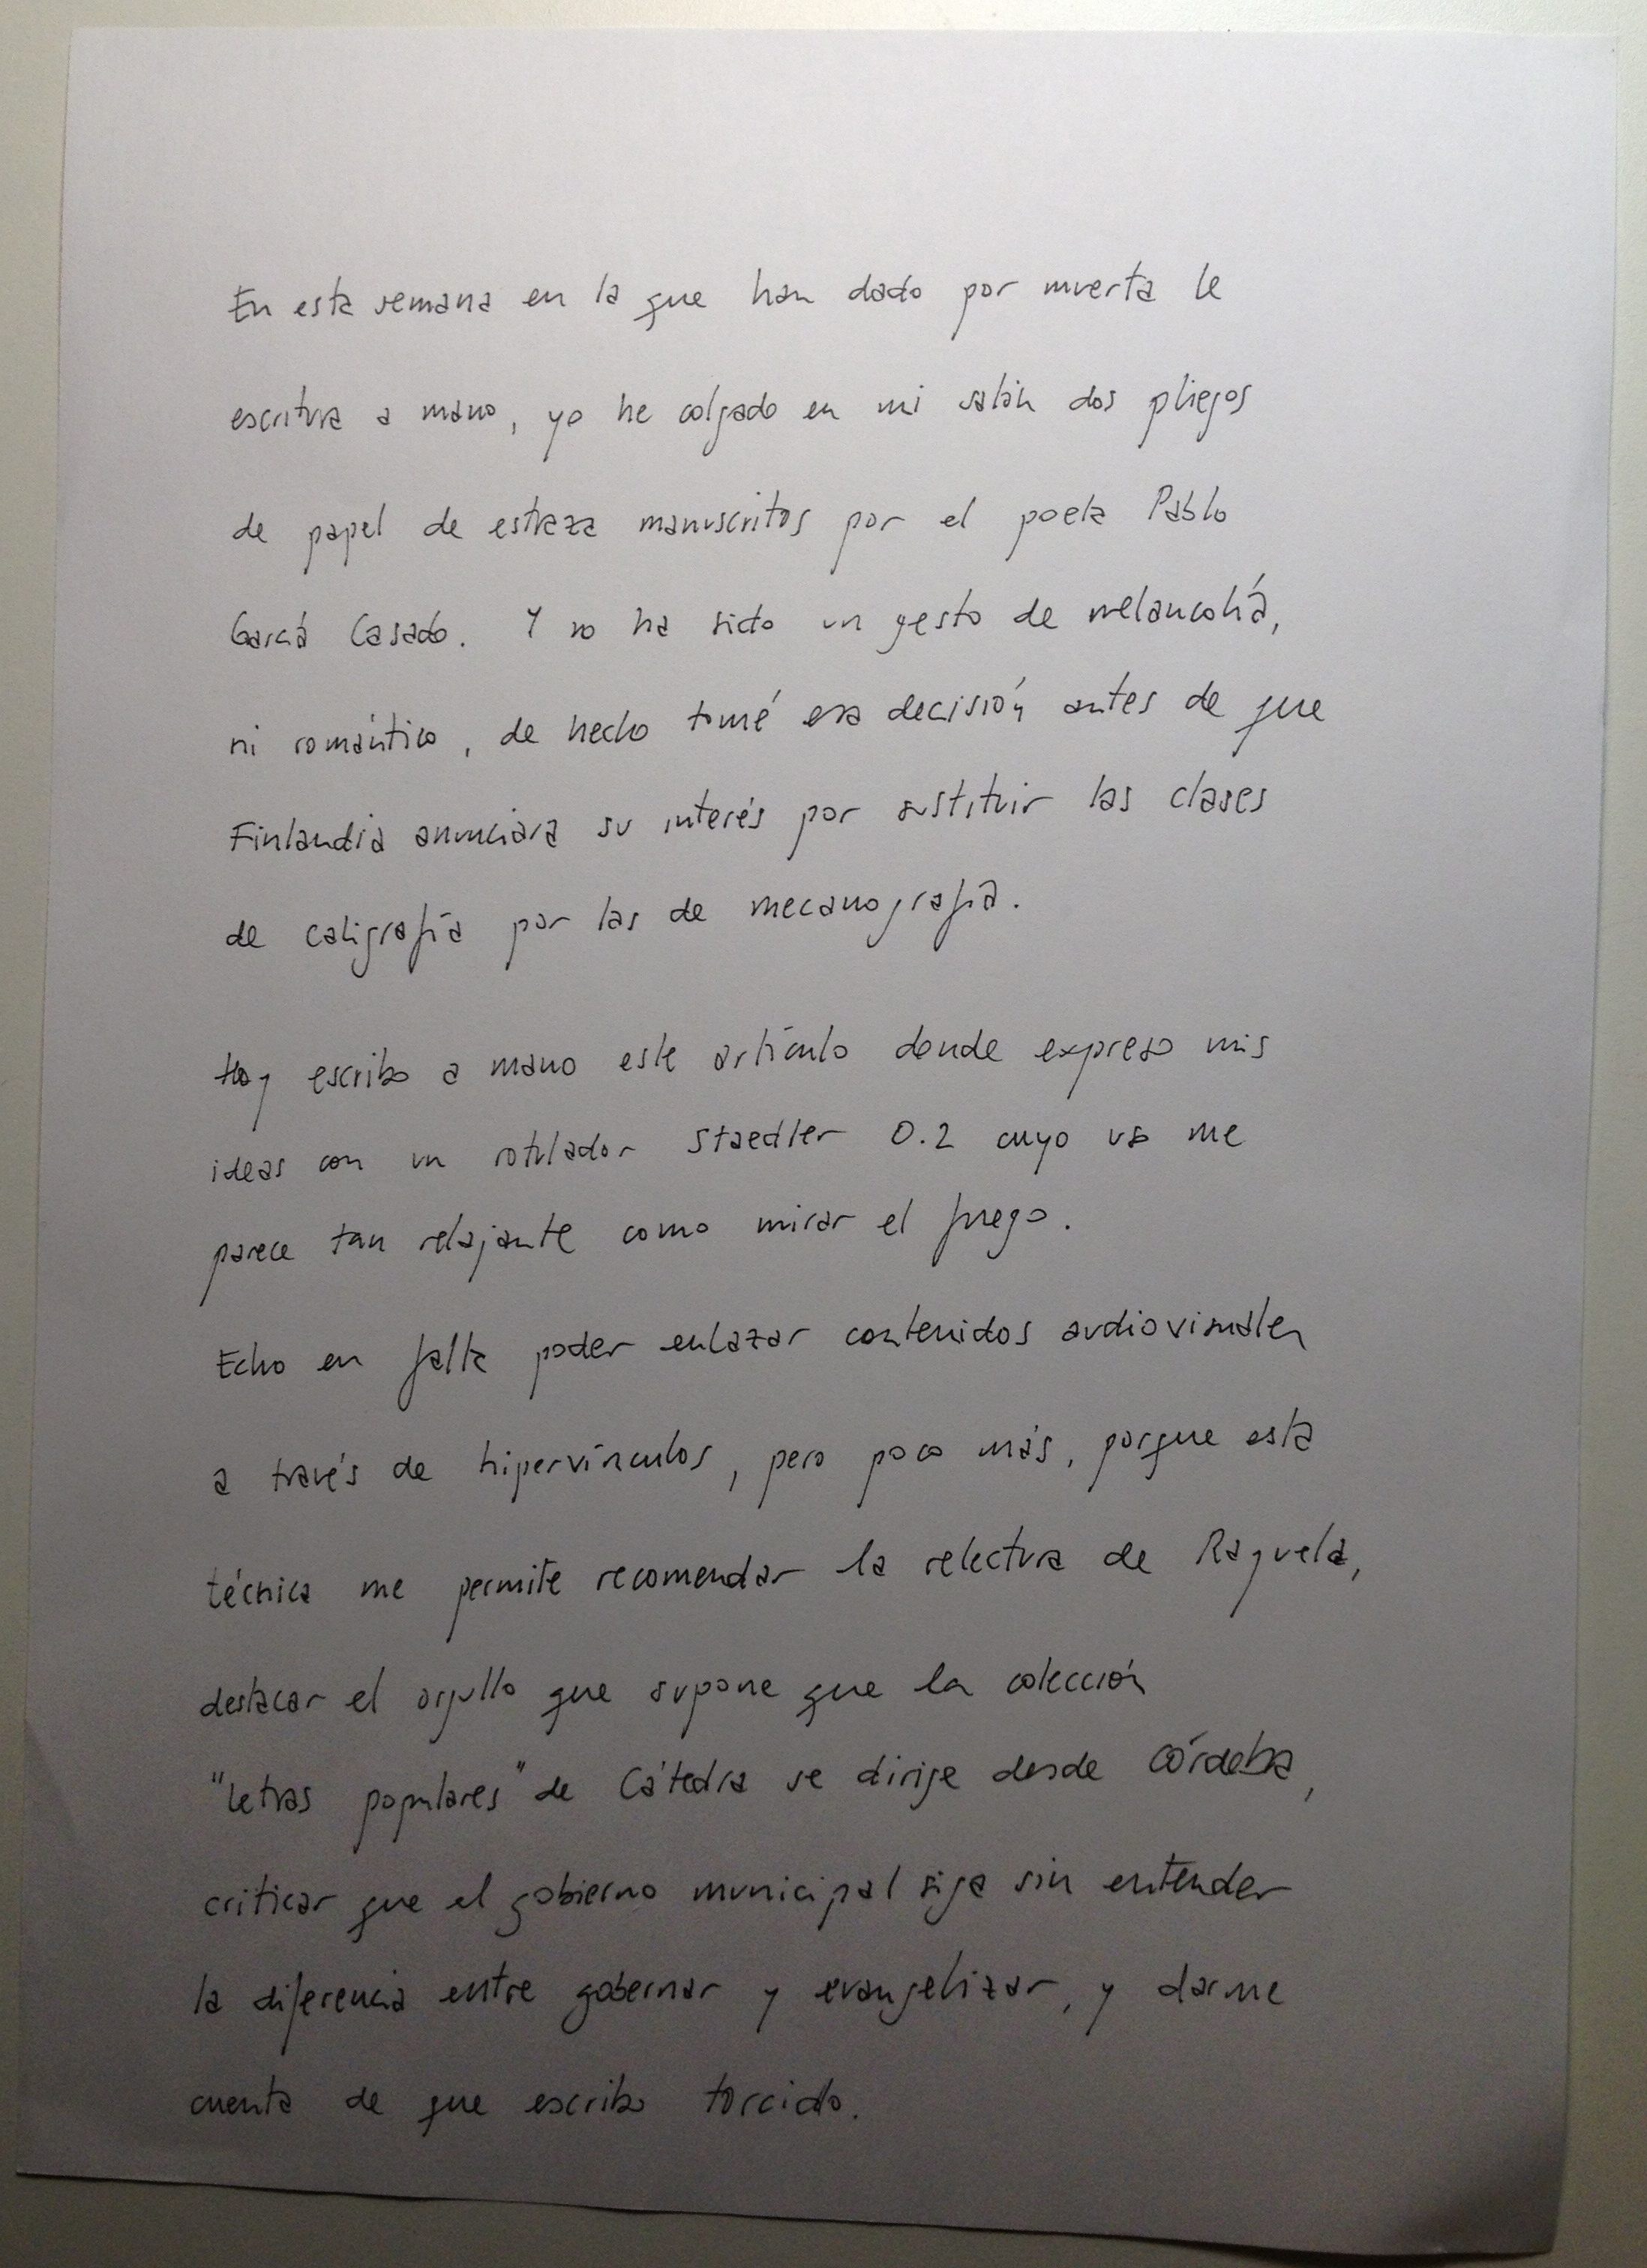 En esta semana en la que han dado por muerta la
escritura a mano, yo he colgado en mi salón dos pliegos
de papel de estraza manuscritos por el poeta Pablo
García Casado. Y no ha sido un gesto de melancolía,
ni romántico, de hecho tomé esa decisión antes de que
Finlandia anunciara su interés por sustituir las clases
de caligrafía por las de mecanografía.
Hoy escribo a mano este artículo donde expreso mis
ideas con un rotulador Staedler 0.2 cuyo uso me
parece tan relajante como mirar el fuego.
Echo en falta poder enlazar contenidos audiovisuales
a través de hipervínculos, pero poco más, porque esta
técnica me permite recomendar la relectura de Rayuela,
destacar el orgullo que supone que la colección
"letras populares" de Cátedra se dirige desde Córdoba,
criticar que el gobierno municipal siga sin entender
la diferencia entre gobernar y evangelizar, y darme
cuenta de que escribo torcido.